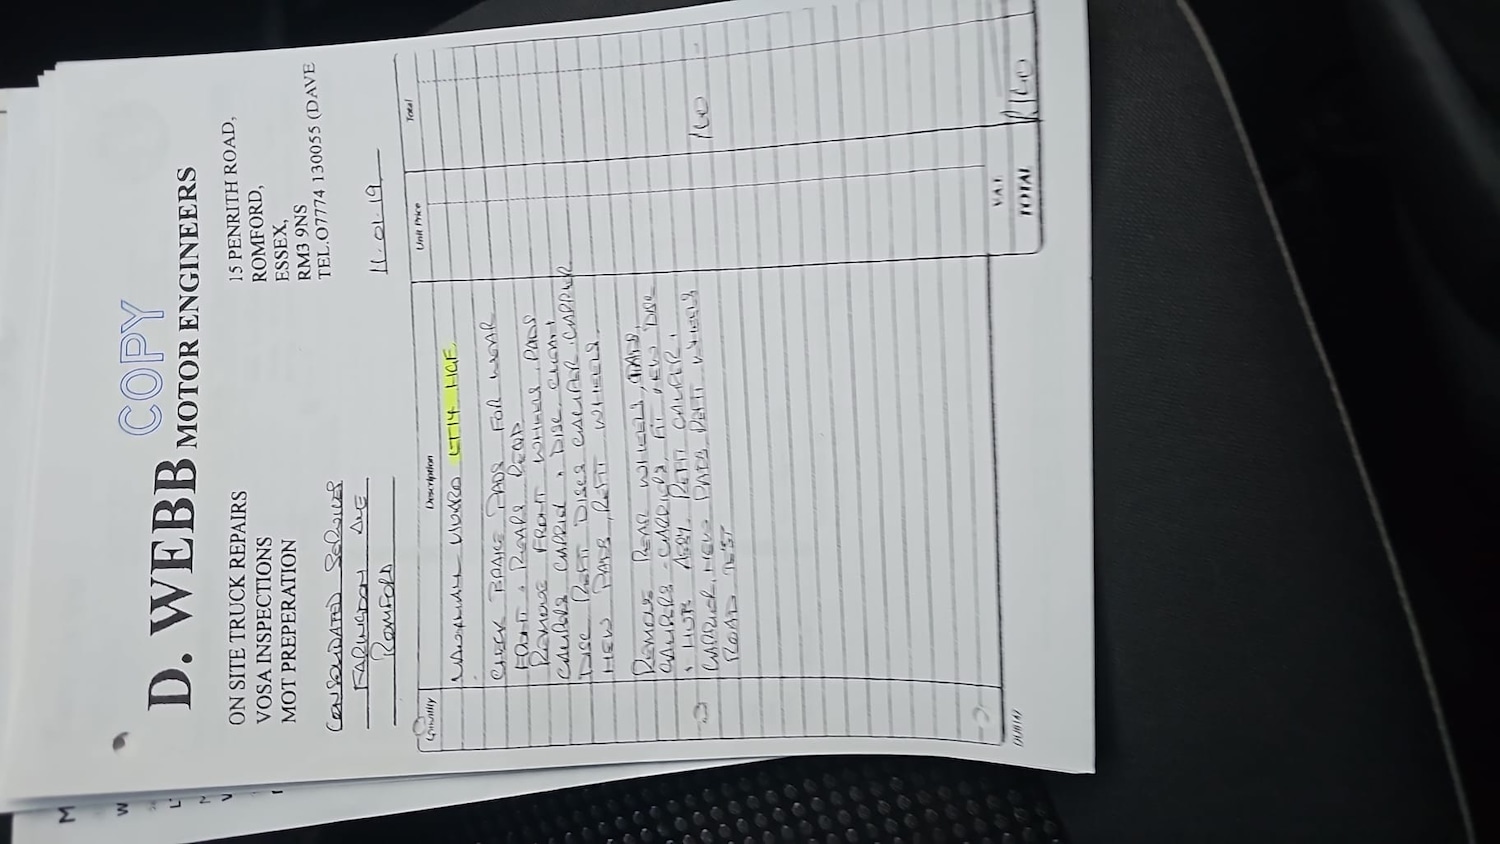 COPY
D. WEBB MOTOR ENGINEERS
ON SITE TRUCK REPAIRS
VOSA INSPECTIONS
MOT PREPERATION
15 PENRITH ROAD,
ROMFORD,
ESSEX,
RM3 9NS
TEL.O7774 130055 (DAVE
CONSOLIDATED SERVICES
FARINGDON AVE
ROMFORD
11-01-19
Quantity Description Unit Price Total
VIVARO
CHECK BRAKE PADS FOR WEAR
FRONT & REAR
REMOVE FRONT WHEELS, PADS
DISC
DISC REFIT DISCS CALIPER CARRIER
NEW PADS, REFIT WHEELS.
REMOVE REAR WHEELS, PADS,
FIT NEW DISC
& HUB ASSY. REFIT CALIPER,
CARRIER, NEW PADS REFIT WHEELS
160
ROAD TEST
V.A.T.
TOTAL £160
M
W